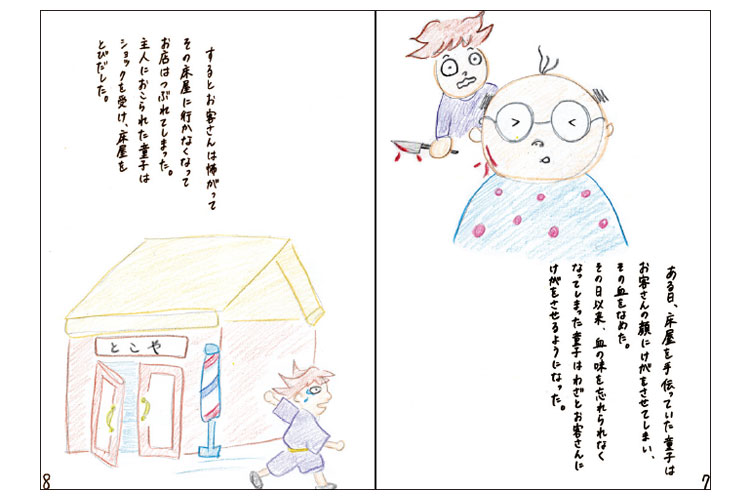 ある日、床屋を手伝っていた童子は
お客さんの顔にけがをさせてしまい、
その血をなめた。
その日以来、血の味を忘れられなく
なってしまった童子はわざとお客さんに
けがをさせるようになった。
7
するとお客さんは怖がって
その床屋に行かなくなって
お店はつぶれてしまった。
主人におこられた童子は
ショックを受け、床屋を
とびだした。
とこや
8